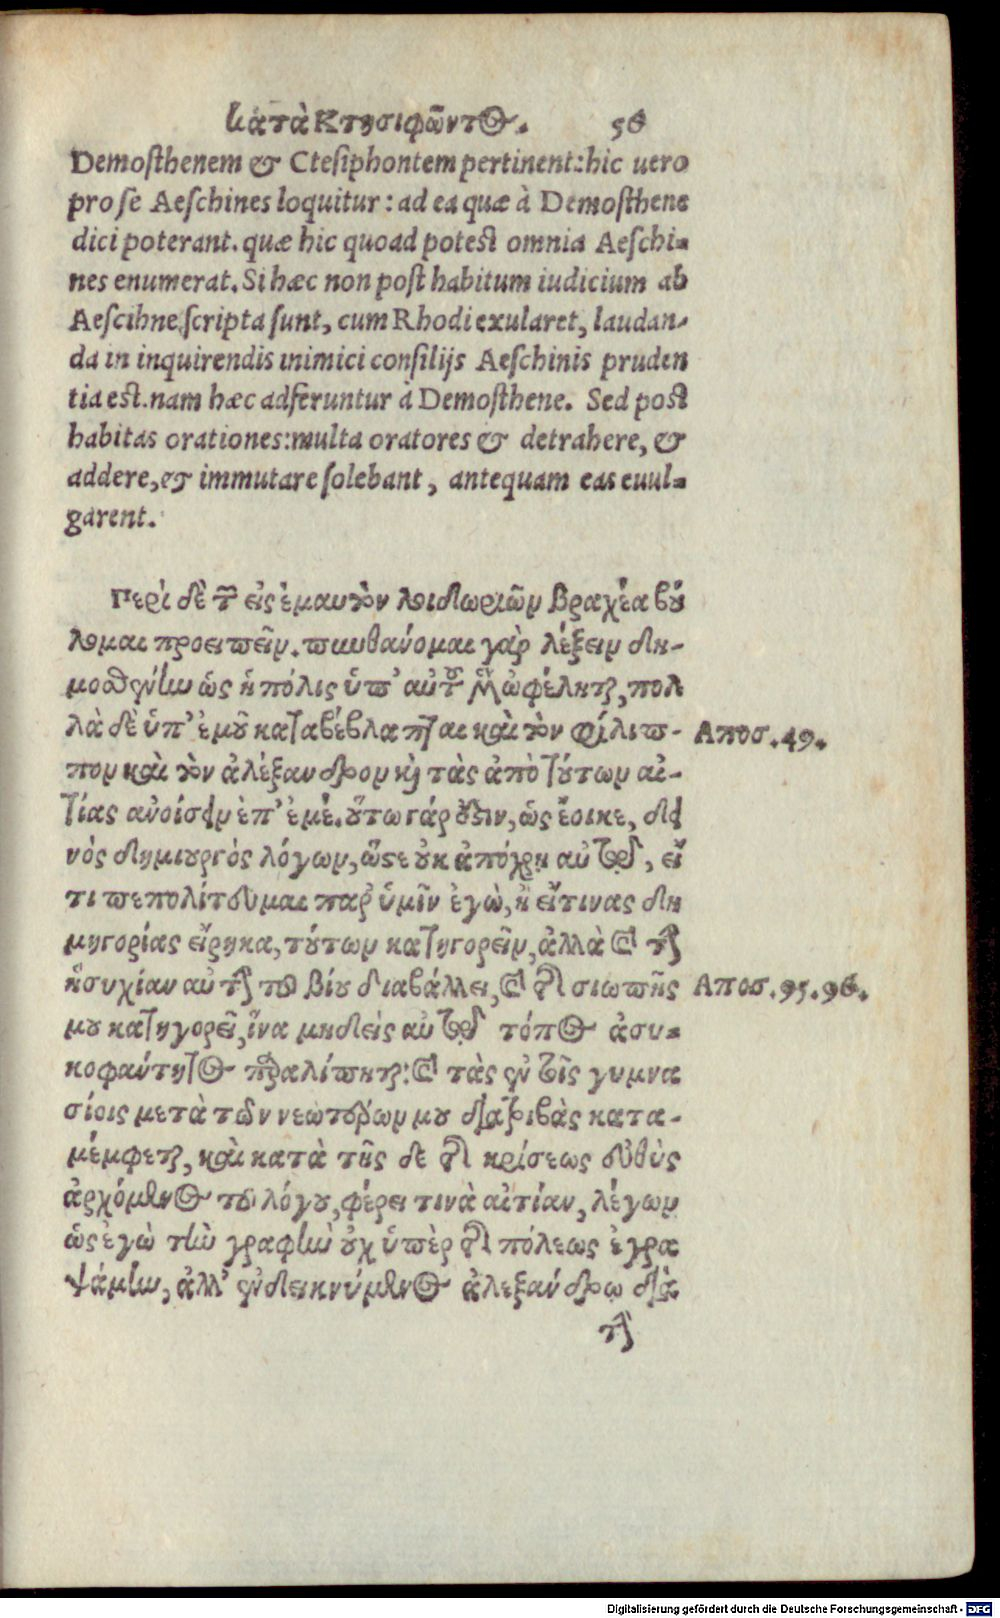 κατὰ Κτησιφῶντος. 56
Demosthenem & Ctesiphontem pertinent: hic uero
pro se Aeschines loquitur: ad ea quæ à Demosthene
dici poterant. quæ hic quoad potest omnia Aeschi-
nes enumerat. Si hæc non post habitum iudicium ab
Aescihne, scripta sunt, cum Rhodi exularet, laudan-
da in inquirendis inimici consilijs Aeschinis pruden
tia est. nam hæc adferuntur à Demosthene. Sed post
habitas orationes: multa oratores & detrahere, &
addere, & immutare solebant, antequam eas euul-
garent.
Περὶ δὲ τῶν εἰς ἐμαυτὸν λοιδωριῶν βραχέα βού
λομαι προειπεῖν. πυνθάνομαι γὰρ λέξειν δη-
μοσθένην ὡς ἡ πόλις ὑπ' αὐτοῦ μὲν ὠφέληται, πολ
λὰ δὲ ὑπ' ἐμοῦ καταβέβλαπται καὶ τὸν φίλιπ-
πον καὶ τὸν ἀλέξανδρον καὶ τὰς ἀπὸ τούτων αἰ-
Αποσ. 49.
τίας ἀνοίσειν ἐπ' ἐμέ. οὕτω γάρ ἐστιν, ὡς ἔοικε, δει
νὸς δημιουργὸς λόγων, ὥστε οὐκ ἀπόχρη αὐτῷ, εἴ
τι πεπολίτευμαι παρ' ὑμῖν ἐγὼ, ἢ εἴ τινας δη
μηγορίας εἴρηκα, τούτων κατηγορεῖν, ἀλλὰ καὶ τὴν
ἡσυχίαν αὐτὴν τοῦ βίου διαβάλλει, καὶ τῆς σιωπῆς
Αποσ. 95. 96.
μου κατηγορεῖ, ἵνα μηδεὶς αὐτῷ τόπος ἀσυ-
κοφάντητος παραλίπηται: καὶ τὰς ἐν τοῖς γυμνα
σίοις μετὰ τῶν νεωτέρων μου διατριβὰς κατα-
μέμφεται, καὶ κατὰ τῆς δε τῆς κρίσεως εὐθὺς
ἀρχόμενος τοῦ λόγου, φέρει τινὰ αἰτίαν, λέγων
ὡς ἐγὼ τὴν γραφὴν οὐχ ὑπὲρ τῆς πόλεως ἐγρα
ψάμην, ἀλλ' ἐνδεικνύμενος ἀλεξάνδρῳ διὰ
τὴν